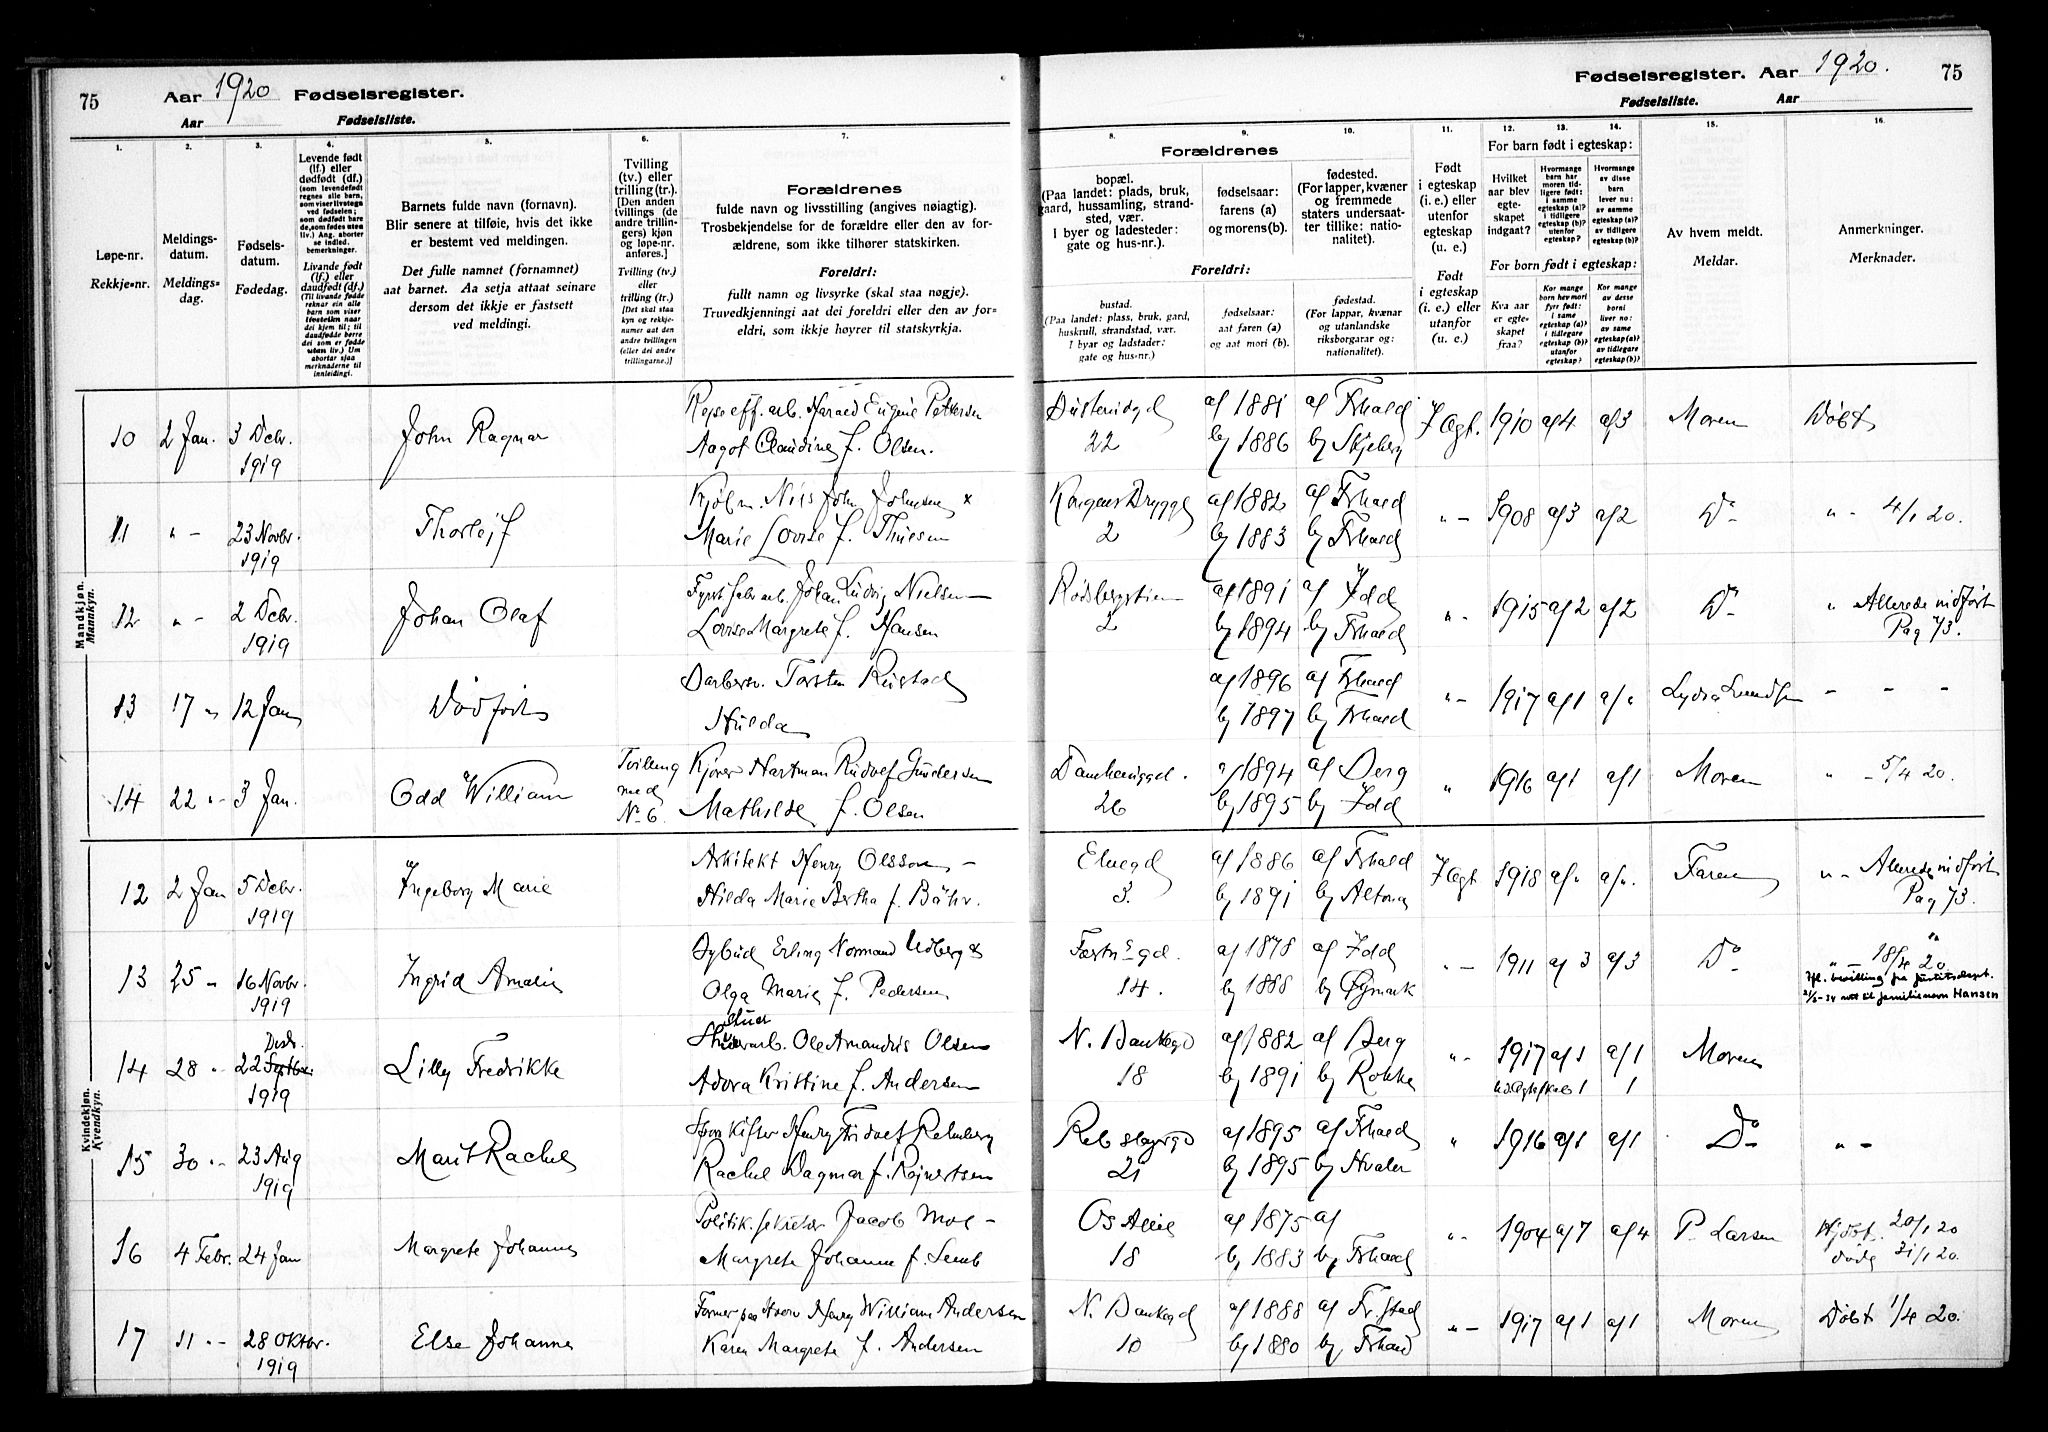 75 Aar 1920 Fødselsregister.
Aar Fødselsliste.
1. 2. 3. 4. 5. 6. 7.
Løpe-nr.
Rekkje-nr.
Meldings-
datum.
Meldings-
dag.
Fødsels-
datum.
Fødedag.
Levende født
(lf.) eller
dødfødt (df.)
(som levendefødt
regnes alle barn,
som viser livstegn
ved fødselen;
som dødfødt bare
de, som fødes uten
liv.) Ang. aborter
se indled.
bemerkninger.
Livande født
(lf.) eller
daudfødt (df.)
(Til livande fødde
reknar ein alle
barn som viser
livsteikn naar
dei kjem til; til
daudfødde berre
dei som er fødde
utan liv.) Um
abortar sjaa
merknaderne til
innleidingi.
Barnets fulde navn (fornavn).
Blir senere at tilføie, hvis det ikke
er bestemt ved meldingen.
Det fulle namnet (fornamnet)
aat barnet. Aa setja attaat seinare
dersom det ikkje er fastsett
ved meldingi.
Tvilling
(tv.) eller
trilling (tr.).
[Den anden
tvillings (de
andre trillin-
gers) kjøn
og løpe-nr.
anføres.]
Tvilling (tv.)
eller
trilling (tr.)
[Det skal staa
kyn og rekkje-
numer aat den
andre tvillingen
(eller dei andre
trillingarne.)]
Forældrenes
fulde navn og livsstilling (angives nøiagtig).
Trosbekjendelse for de forældre eller den av for-
ældrene, som ikke tilhører statskirken.
Foreldri:
fullt namn og livsyrke (skal staa nøgje).
Truvedkjenningi aat dei foreldri eller den av for-
eldri, som ikkje høyrer til statskyrkja.
Mandkjøn.
Mannkyn.
10 2 Jan. 3 Debr. 1919 John Ragnar
Harald Eugene Pettersen
Aagot Claudine f. Olsen.
11 " - 23 Novbr. 1919 Thorleif
Nils John Johnsen x
Marie Lovise f. Thiesen
12 " - 2 Debr. 1919 Johan Olaf
Johan Ludvig Nielsen
Lovise Margrete f. Hansen
13 17 " 12 Jan Dødført
Torsten Rustad
Hulda
14 22 " - 3 Jan. Odd William
Tvilling
med
No 6.
Hartman Rudolf Gundersen
Mathilde f. Olsen
Kvindekjøn.
Kvendkyn.
12 2 Jan 5 Debr. 1919 Ingeborg Marie
Arkitekt Henry Olsson -
Hilda Marie Bertha f. Bähr.
13 25 " 16 Novbr. 1919 Ingrid Amalia
Erling Normand Udberg
Olga Marie f. Pedersen
14 28 " - Desbr. 22 1919 Lilly Fredrikke
Ole Amandus Olsen
Adora Kristine f. Andersen
15 30 " - 23 Aug 1919 Marit Rachel
Henry Fridolf Relmberg
Rachel Dagmar f. Rejnertsen
16 4 Febr. 24 Jan Margrete Johanne
Politik. sekretær Jacob Moe -
Margrete Johanne f. Lemb
17 11 " - 28 Oktbr. 1919 Else Johanne
Henry William Andersen
Karen Margrete f. Andersen
Fødselsregister. Aar 1920. 75
Fødselsliste. Aar
8. 9. 10. 11. 12. 13. 14. 15. 16.
Forældrenes
bopæl.
(Paa landet: plads, bruk,
gaard, hussamling, strand-
sted, vær.
I byer og ladesteder:
gate og hus-nr.).
fødselsaar:
farens (a)
og morens (b).
fødested.
(For lapper, kvæner
og fremmede
staters undersaat-
ter tillike: natio-
nalitet).
Foreldri:
bustad.
(Paa landet: plass, bruk, gard,
huskrull, strandstad, vær.
I byar og ladstader:
gate og hus-nr.)
fødselsaar:
aat faren (a)
og aat mori (b).
fødestad.
(For lappar, kvænar
og utanlandske
riksborgarar og:
nationalitet).
Født
i egteskap
(i. e.) eller
utenfor
egteskap
(u. e.)
Født
i egteskap
(i. e.) eller
utanfor
(u. e.)
For barn født i egteskap:
Hvilket
aar blev
egte-
skapet
indgaat?
Hvormange
barn har
moren tid-
ligere født:
i samme
egteskap (a)?
i tidligere
egteskap (b)?
utenfor
egteskap?
Hvormange
av disse
barn
lever nu:
av samme
egteskap (a)?
av tidligere
egteskap (b)?
For born født i egteskap:
Kva aar
er egte-
skapet
fraa?
Kor mange
born hev mori
fyrr født:
i same
egteskap (a)?
i tidlegare
egteskap (b)?
utanfor
egteskap?
Kor mange
av desse
borni
liver no:
av same
egteskap (a)?
av tidlegare
egteskap (b)?
Av hvem meldt.
Meldar.
Anmerkninger.
Merknader.
22 a) 1881 b) 1886 a) Frhald b) Skjeberg I Egt. 1910 a) 4 a) 3 Moren Døbt
Kongens Brygge 2 a) 1882 b) 1883 a) Frhald b) Frhald " - 1908 a) 3 a) 2 Do " - 4/1 20.
Rødsbergstien 2 a) 1891 b) 1894 a) Idd b) Frhald " - 1915 a) 2 a) 2 Do " Allerede indført
Pag 73.
a) 1896 b) 1897 a) Frhald b) Frhald " - 1917 a) 1 a) " Lydia - - -
26 a) 1894 b) 1895 a) Berg b) Idd " 1916 a) 1 a) 1 Moren " - 5/4 20.
Elvegd 3. a) 1886 b) 1891 a) Frhald b) Altona I Egt 1918 a) " a) " Faren " - Allerede indført
Pag 73.
Fæstn.s gd. 14. a) 1878 b) 1888 a) Idd b) Øymark " - 1911 a) 3 a) 3 Do " - 18/4 20
Ifl. bevilling fra Justitsdept.
21/3-24 rett til familienavn Hansen
N. Bankegd 18 a) 1882 b) 1891 a) Berg b) Rokke " - 1917 a) 1 a) 1 Moren
u. Egteskab 1 1
Rebslagergd 21 a) 1895 b) 1895 a) Frhald b) Hvaler " 1916 a) 1 a) 1 Do " -
Os Allé 18 a) 1875 b) 1883 a) b) Frhald " - 1904 a) 7 a) 4 P. Larsen Hjdøbt. 20/1 20
døde 31/1 20.
N. Bankegd 10 a) 1888 b) 1880 a) Fr.stad b) Frhald " - 1917 a) 1 a) 1 Moren Døbt 1/4 20.